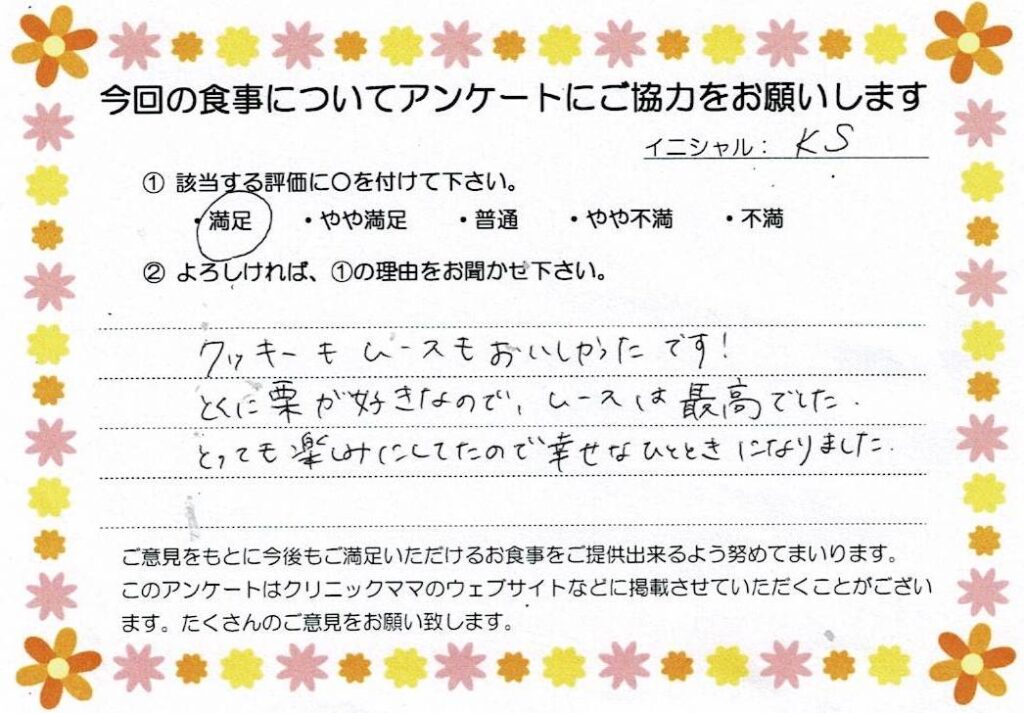 今回の食事についてアンケートにご協力をお願いします
イニシャル： KS
① 該当する評価に〇を付けて下さい。
・満足 ・やや満足 ・普通 ・やや不満 ・不満
② よろしければ、①の理由をお聞かせ下さい。
クッキーもムースもおいしかったです!
とくに栗が好きなので、ムースは最高でした.
とっても楽しみにしてたので幸せなひとときになりました.
ご意見をもとに今後もご満足いただけるお食事をご提供出来るよう努めてまいります。
このアンケートはクリニックママのウェブサイトなどに掲載させていただくことがござい
ます。たくさんのご意見をお願い致します。